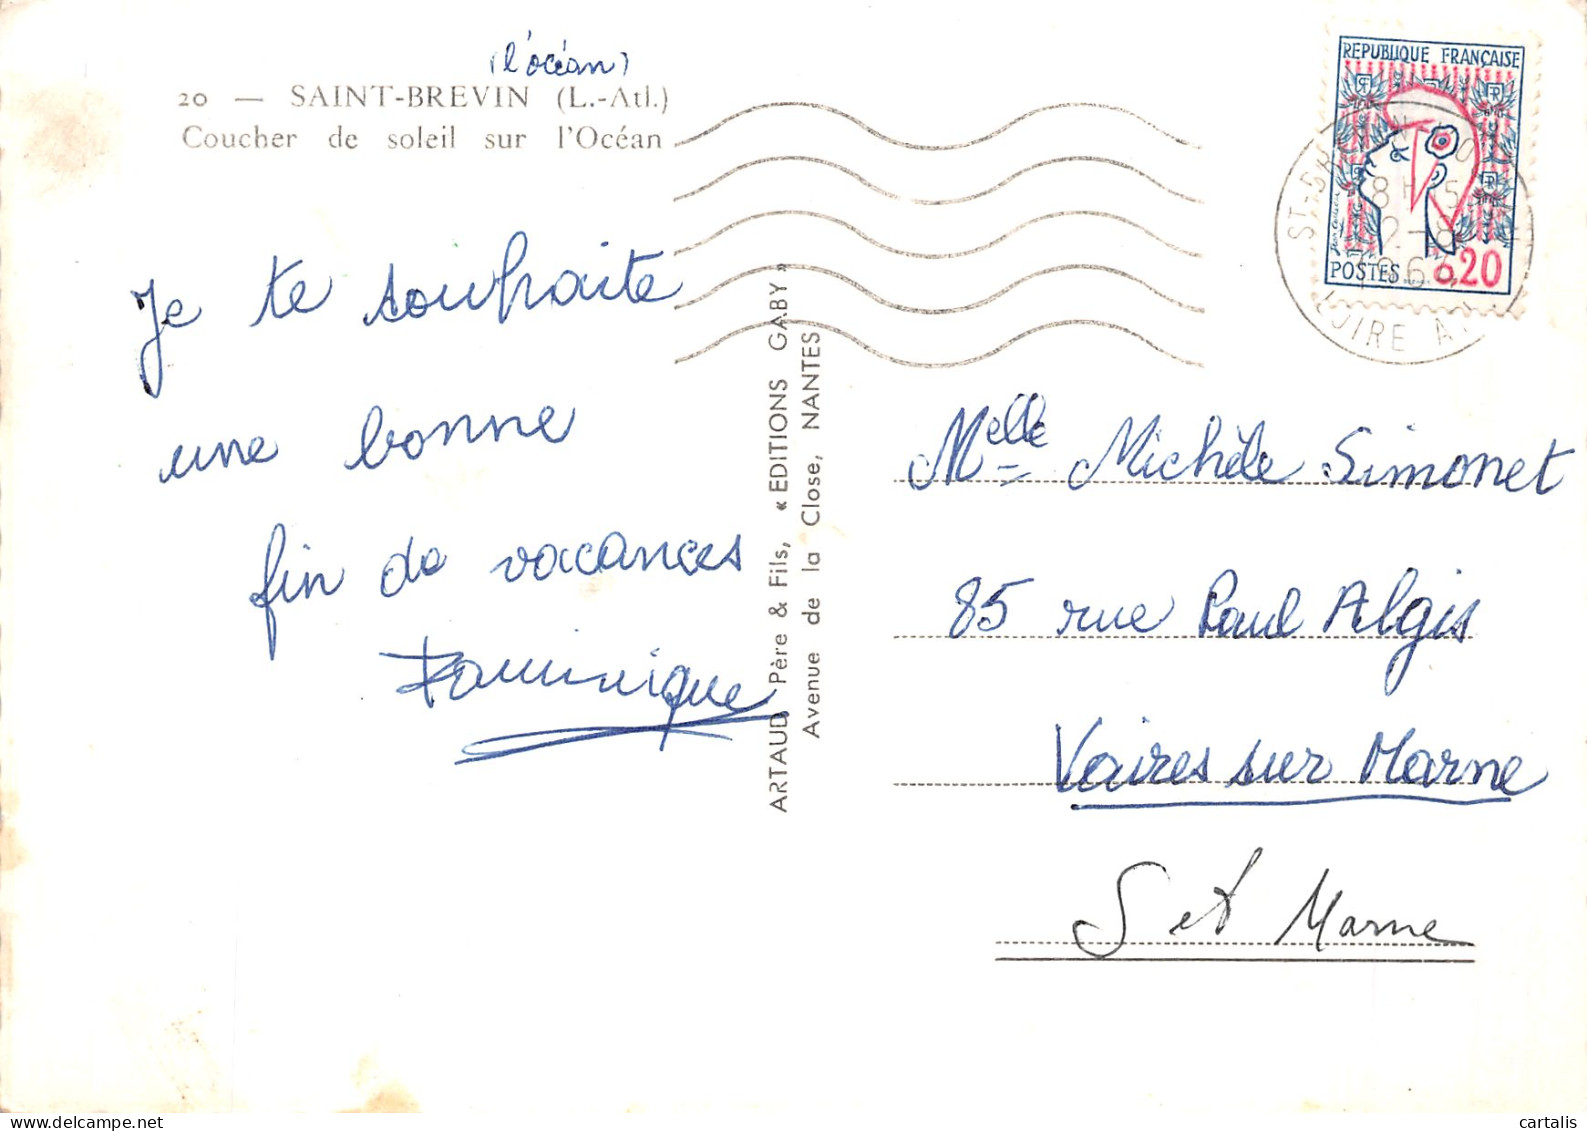 (l'océan)
20 — SAINT-BREVIN (L.-Atl.)
Coucher de soleil sur l'Océan
Je te souhaite
une bonne
fin de vacances
Dominique
ARTAUD Père & Fils, « EDITIONS GABY »
Avenue de la Close, NANTES
REPUBLIQUE FRANÇAISE
POSTES 0,20
LOIRE
Melle Michèle Simonet
85 rue Paul Algis
Vaires sur Marne
S et Marne
cartalis